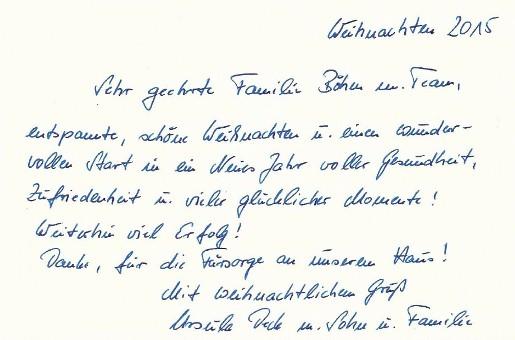 Weihnachten 2015
Sehr geehrte Familie Böhm m. Team,
entspannte, schöne Weihnachten u. einen wunder-
vollen Start in ein Neues Jahr voller Gesundheit,
Zufriedenheit u. vieler glücklicher Momente!
Weiterhin viel Erfolg!
Danke, für die Fürsorge an unserem Haus!
Mit weihnachtlichem Gruß
Ursula m. Sohn u. Familie